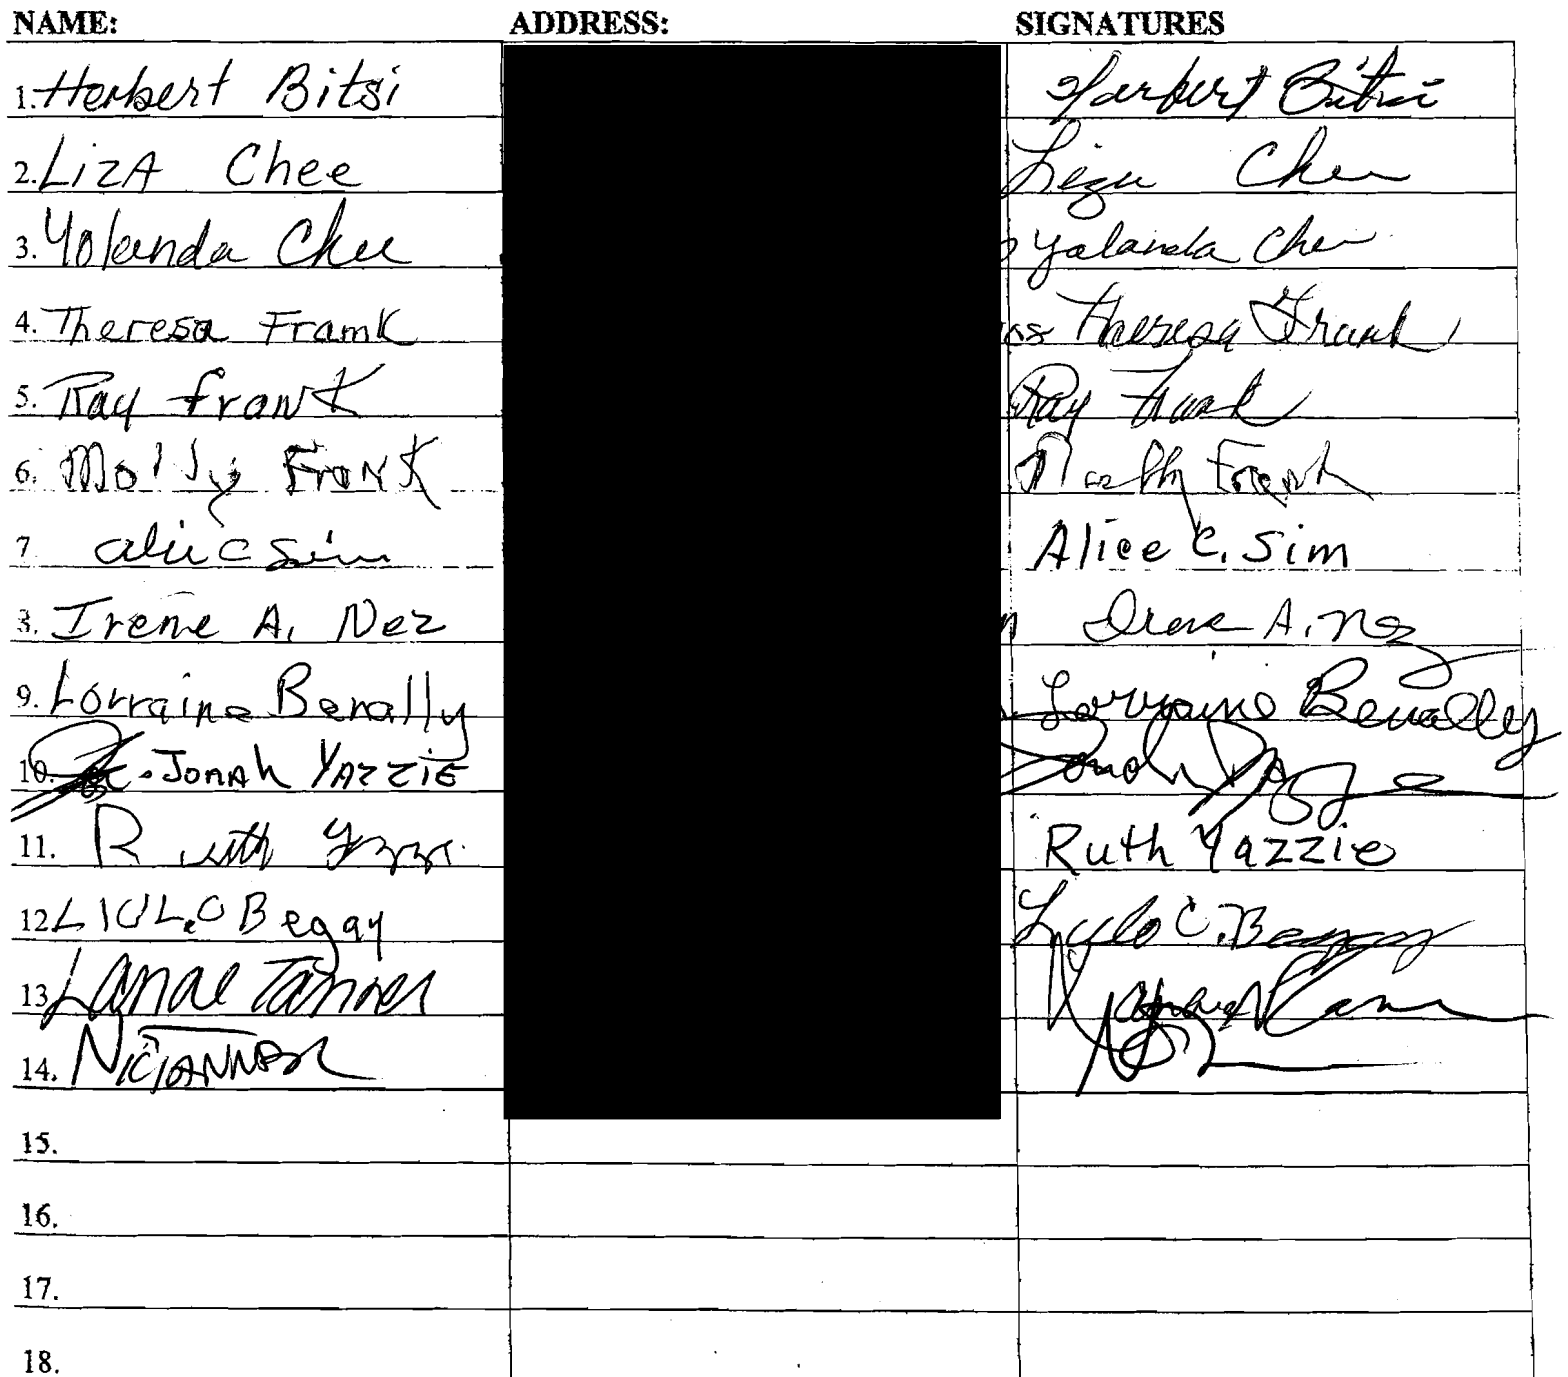 NAME: ADDRESS: SIGNATURES
1. Herbert Bitsi Harbert Bitsi
2. LizA Chee Liza Chee
3. Yolanda Chee Yolanda Chee
4. Theresa Framk Theresa Frank
5. Ray Frank Ray Frank
6. Molly Frank Frank
7. alic c sim Alice C. Sim
8. Irene A. Nez Irene A. Nez
9. Lorraine Benally Lorraine Benally
10. Jonah YAzziE Jonah
11. Ruth Ruth Yazzie
12. Begay C. Begay
13. Lanae Tanner
14.
15.
16.
17.
18.